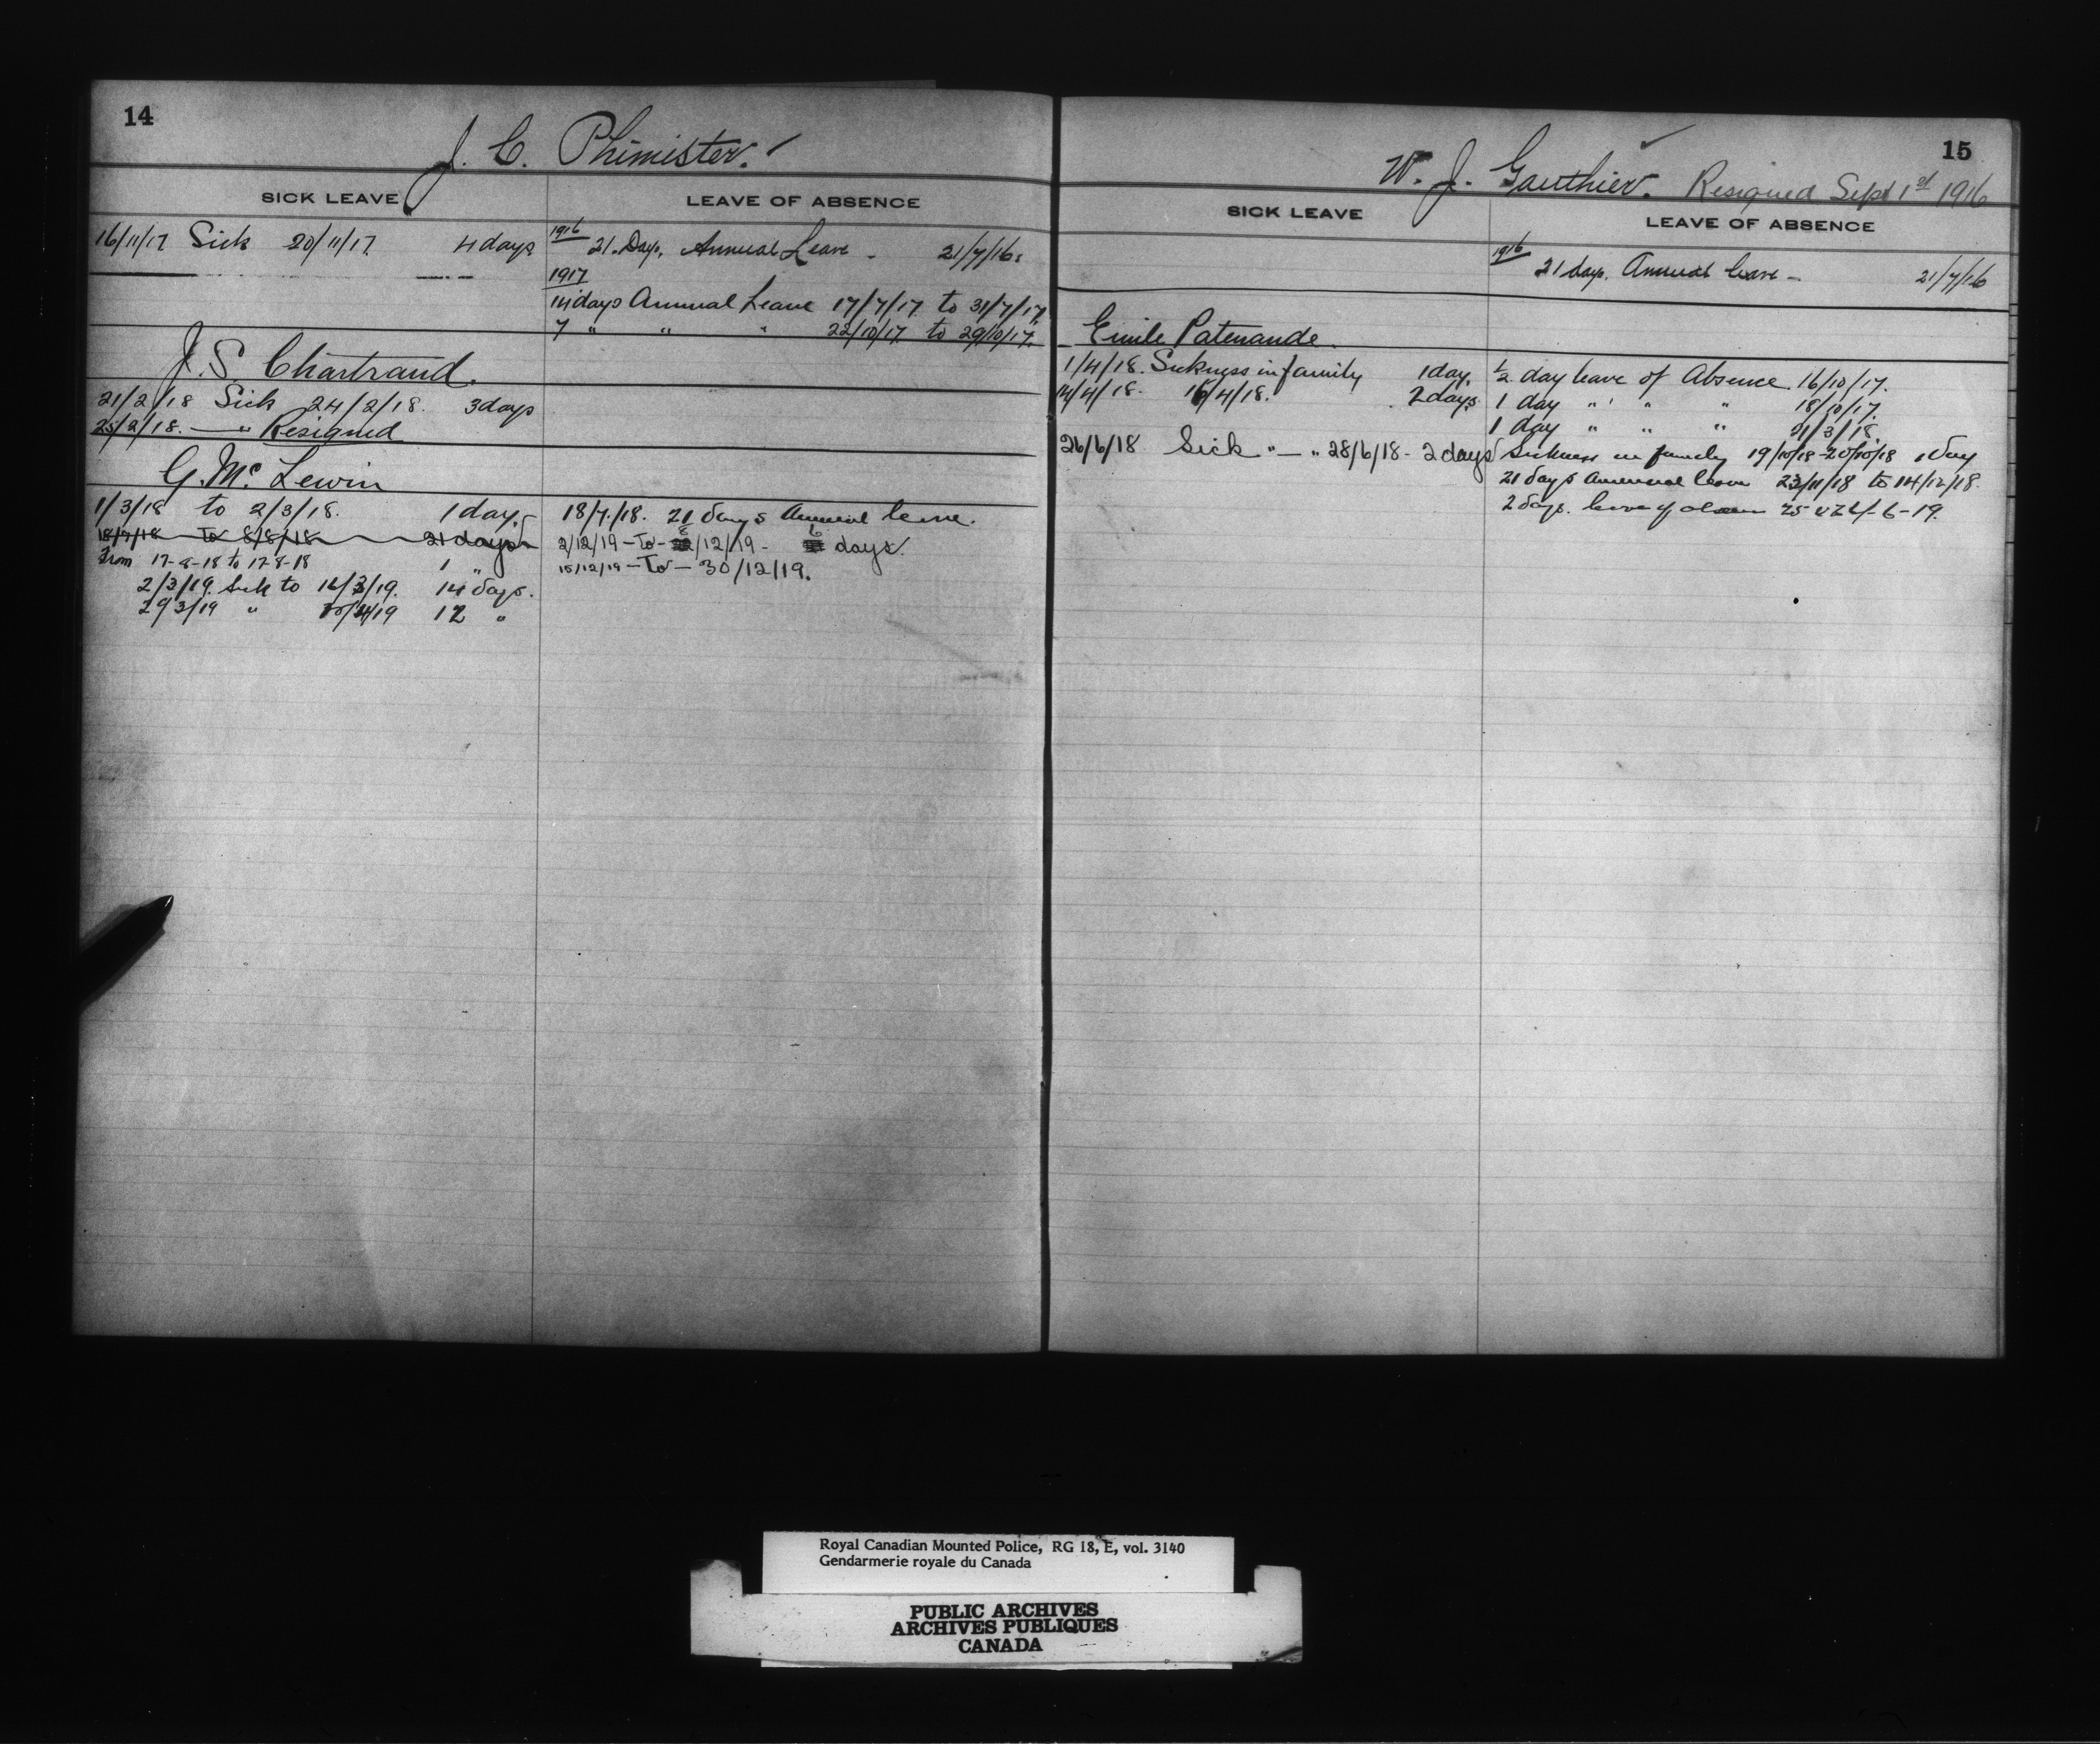 14
J. C. Phimister.
SICK LEAVE
LEAVE OF ABSENCE
16/11/17 Sick 20/11/17. 4 days
1916
21. Days. Annual Leave - 21/7/16.
1917
14 days Annual Leave 17/7/17 to 31/7/17.
7 " " " 22/10/17. to 29/10/17.
J. S Chartrand.
21/2/18 Sick 24/2/18. 3 days
25/2/18. — " Resigned
G. Mc Lewin
1/3/18 to 2/3/18. 1 day.
18/7/18 To 8/8/18 21 days
From 17-8-18 to 17-8-18 1 "
2/3/19. Sick to 16/3/19. 14 days.
29 3/19 " 12 "
18/7/18. 21 days Annual leave.
2/12/19 - To - 8/12/19 - 6 days.
15/12/19 - To - 30/12/19.
15
W. J. Gauthier. Resigned Sept 1st 1916
SICK LEAVE
LEAVE OF ABSENCE
1916
21 days. Annual leave - 21/7/16
Emile Patenaude.
1/4/18. Sickness in family 1 day.
14/4/18. 16/4/18. 2 days
26/6/18 Sick " — " 28/6/18 - 2 days
1/2 day leave of Absence. 16/10/17.
1 day " " " 18/10/17.
1 day " " " 21/3/18.
Sickness in family 19/10/18 - 20/10/18 1 day
21 days annual leave 23/11/18 to 14/12/18.
2 days. leave of absence 25 & 26/-6-19.
Royal Canadian Mounted Police, RG 18, E, vol. 3140
Gendarmerie royale du Canada
PUBLIC ARCHIVES
ARCHIVES PUBLIQUES
CANADA